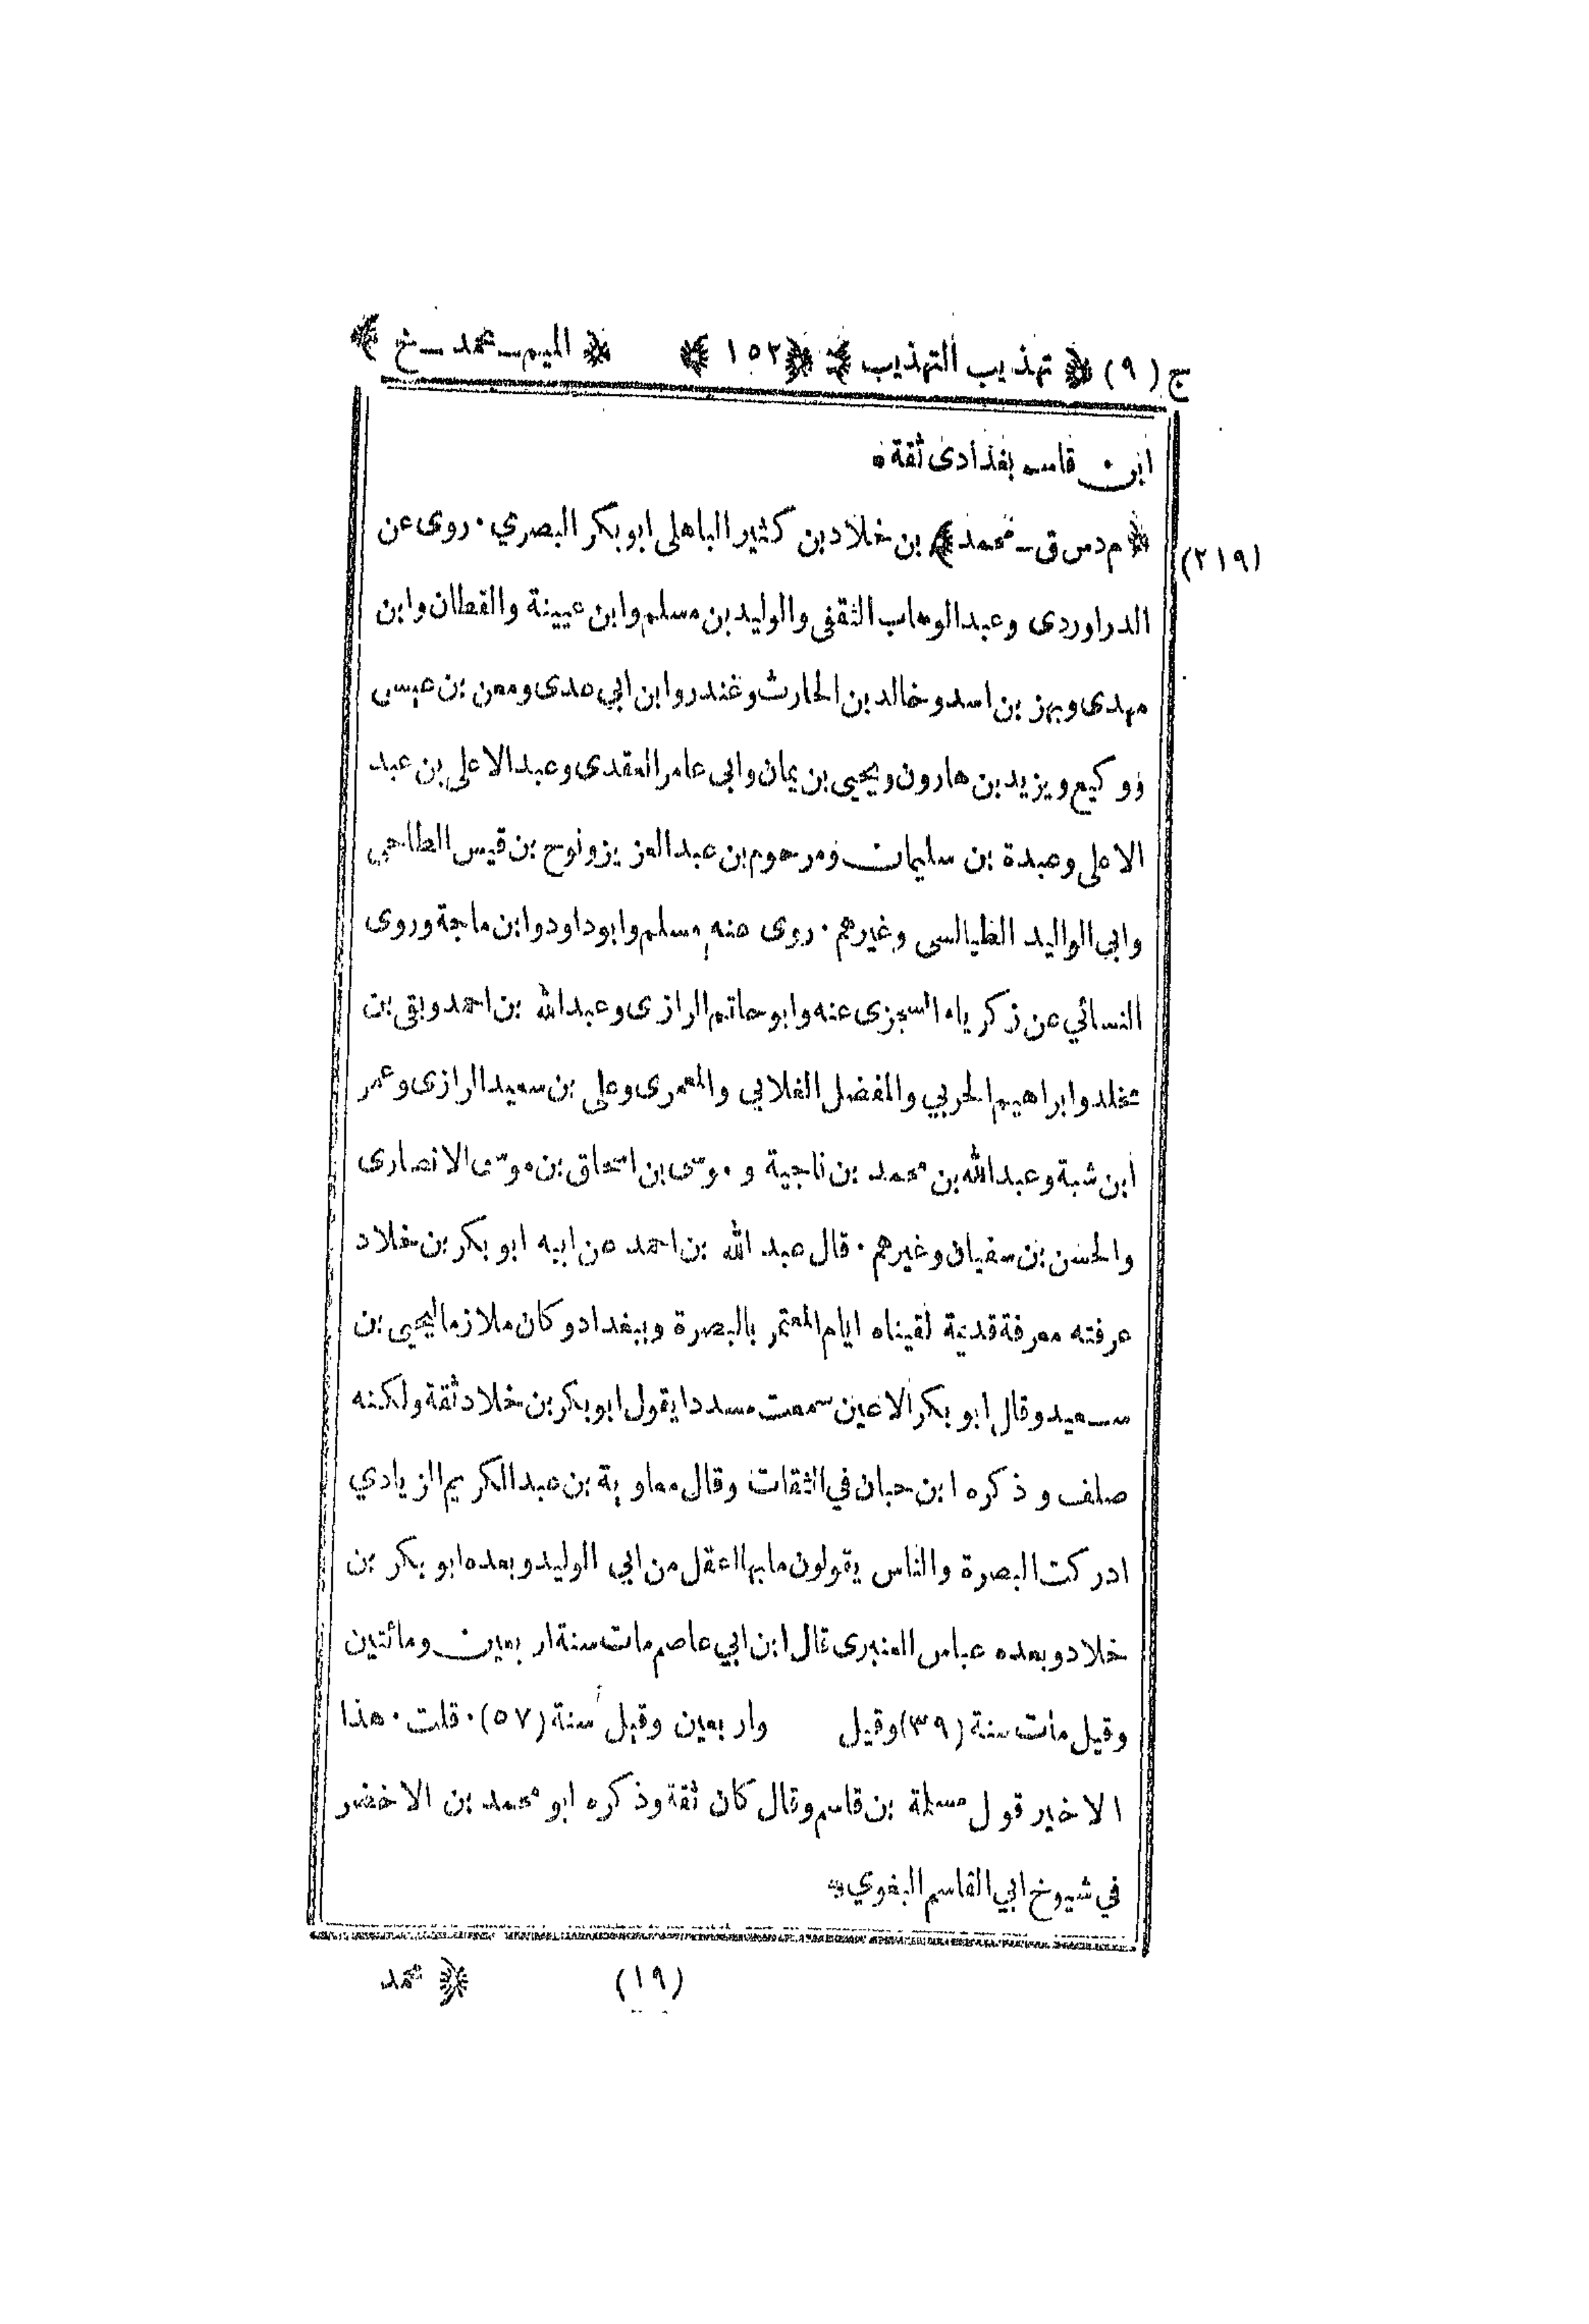 ج (٩) ﴿ تهذيب التهذيب ﴾ ﴿ ١٥٢ ﴾ ﴿ الميم ــ محمد ــ خ ﴾
ابن قاسم بغدادى ثقة *
﴿ م د س ق ــ محمد ﴾ بن خلاد بن كثير الباهلى ابو بكر البصري ٠ روى عن
(٢١٩)
الدراوردى وعبد الوهاب الثقفى والوليد بن مسلم وابن عيينة والقطان وابن
مهدى وبهز بن اسد وخالد بن الحارث وغندر وابن ابي عدى ومعن بن عيسى
ووكيع ويزيد بن هارون ويحيى بن يمان وابى عامر العقدى وعبد الاعلى بن عبد
الاعلى وعبدة بن سليمان ومرحوم بن عبد العزيز ونوح بن قيس الطاحى
وابى الواليد الطيالسى وغيرهم ٠ روى عنه مسلم وابو داود وابن ماجة وروى
النسائي عن زكرياء السجزى عنه وابو حاتم الرازى وعبد الله بن احمد وبقى بن
مخلد وابراهيم الحربي والمفضل الغلابي والمعمرى وعلى بن سعيد الرازى وعمر
ابن شبة وعبد الله بن محمد بن ناجية وموسى بن اسحاق بن موسى الانصارى
والحسن بن سفيان وغيرهم ٠ قال عبد الله بن احمد عن ابيه ابو بكر بن خلاد
عرفته معرفة قديمة لقيناه ايام المعتمر بالبصرة وببغداد وكان ملازما ليحيى بن
سعيد وقال ابو بكر الاعين سمعت مسددا يقول ابو بكر بن خلاد ثقة ولكنه
صلف وذكره ابن حبان في الثقات وقال معاوية بن عبد الكريم الزيادي
ادركت البصرة والناس يقولون ما بها اعقل من ابي الوليد وبعده ابو بكر بن
خلاد وبعده عباس العنبرى قال ابن ابي عاصم مات سنة اربعين ومائتين
وقيل مات سنة (٣٩) وقيل واربعين وقيل سنة (٥٧) ٠ قلت ٠ هذا
الاخير قول مسلمة بن قاسم وقال كان ثقة وذكره ابو محمد بن الاخضر
في شيوخ ابي القاسم البغوي *
(١٩) ﴿ محمد